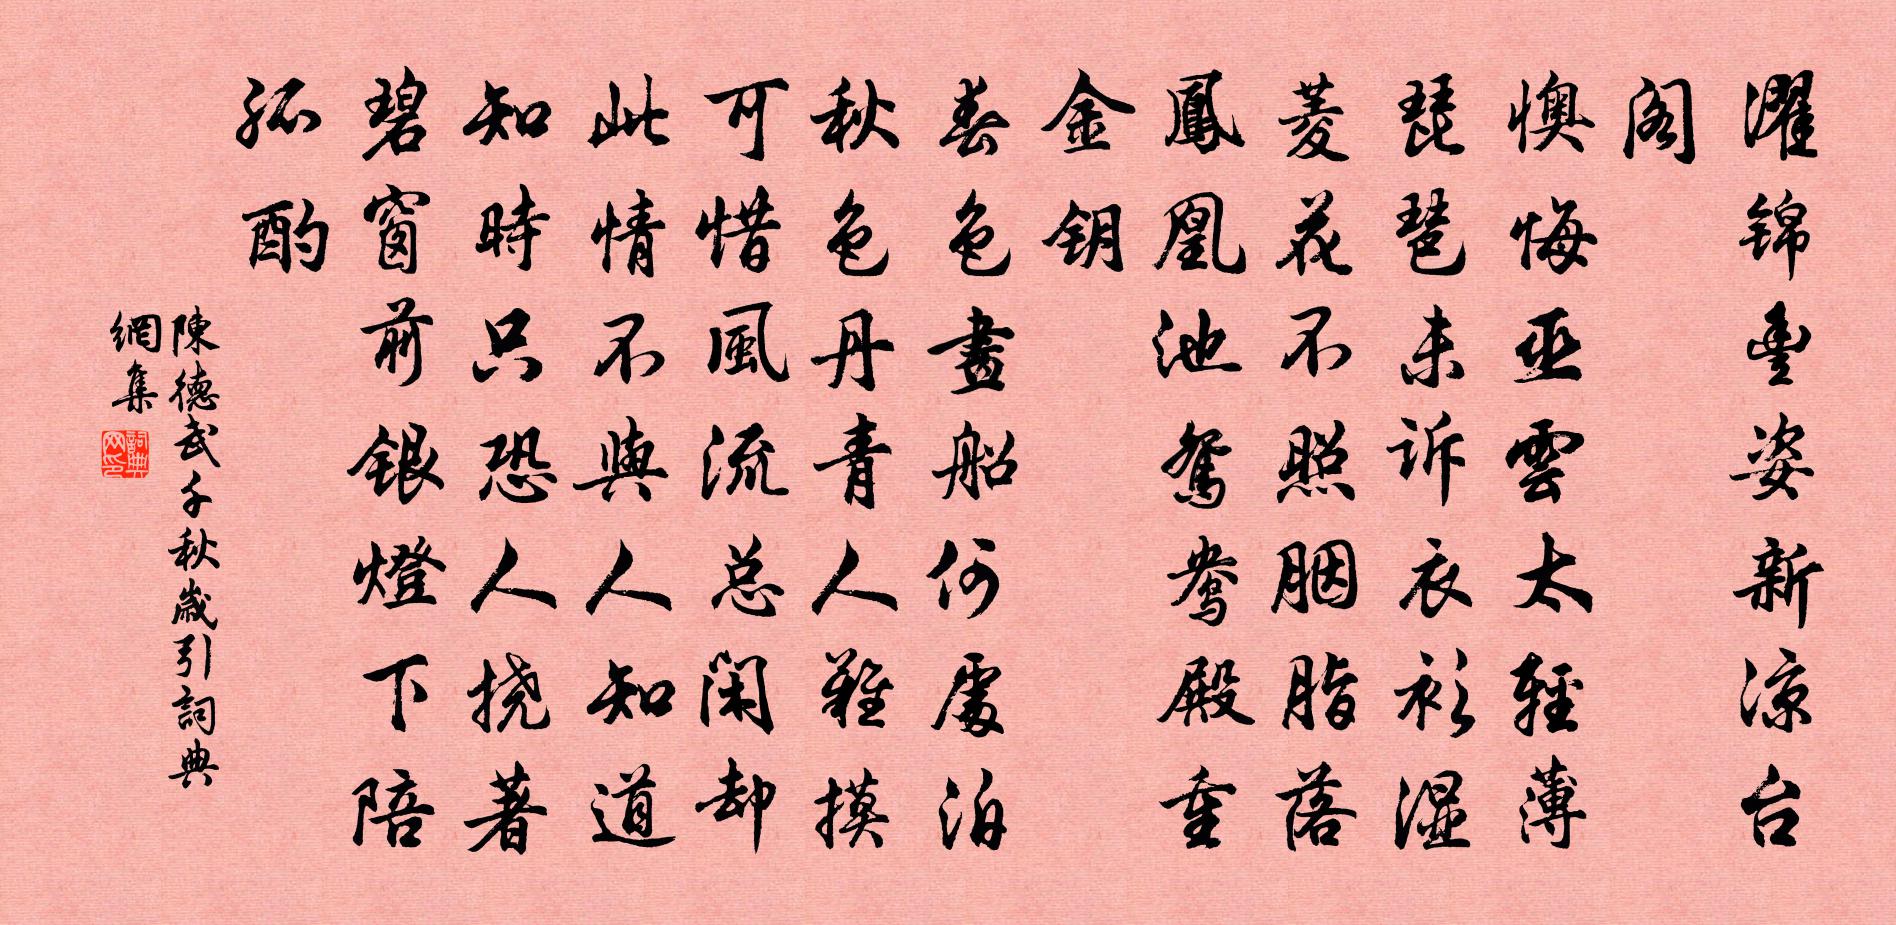 濯锦丰姿新凉台
阁
懊悔巫雲太輕薄
琵琶未诉衣衫湿
菱花不照胭脂落
鳳凰池鸳鸯殿重
金钥
春色畫船何處泊
秋色丹青人難摸
可惜風流总闲却
此情不與人知道
知時只恐人撓著
碧窗前銀燈下陪
孤酌
陳德武千秋歲引詞典
網集
詞典
网印